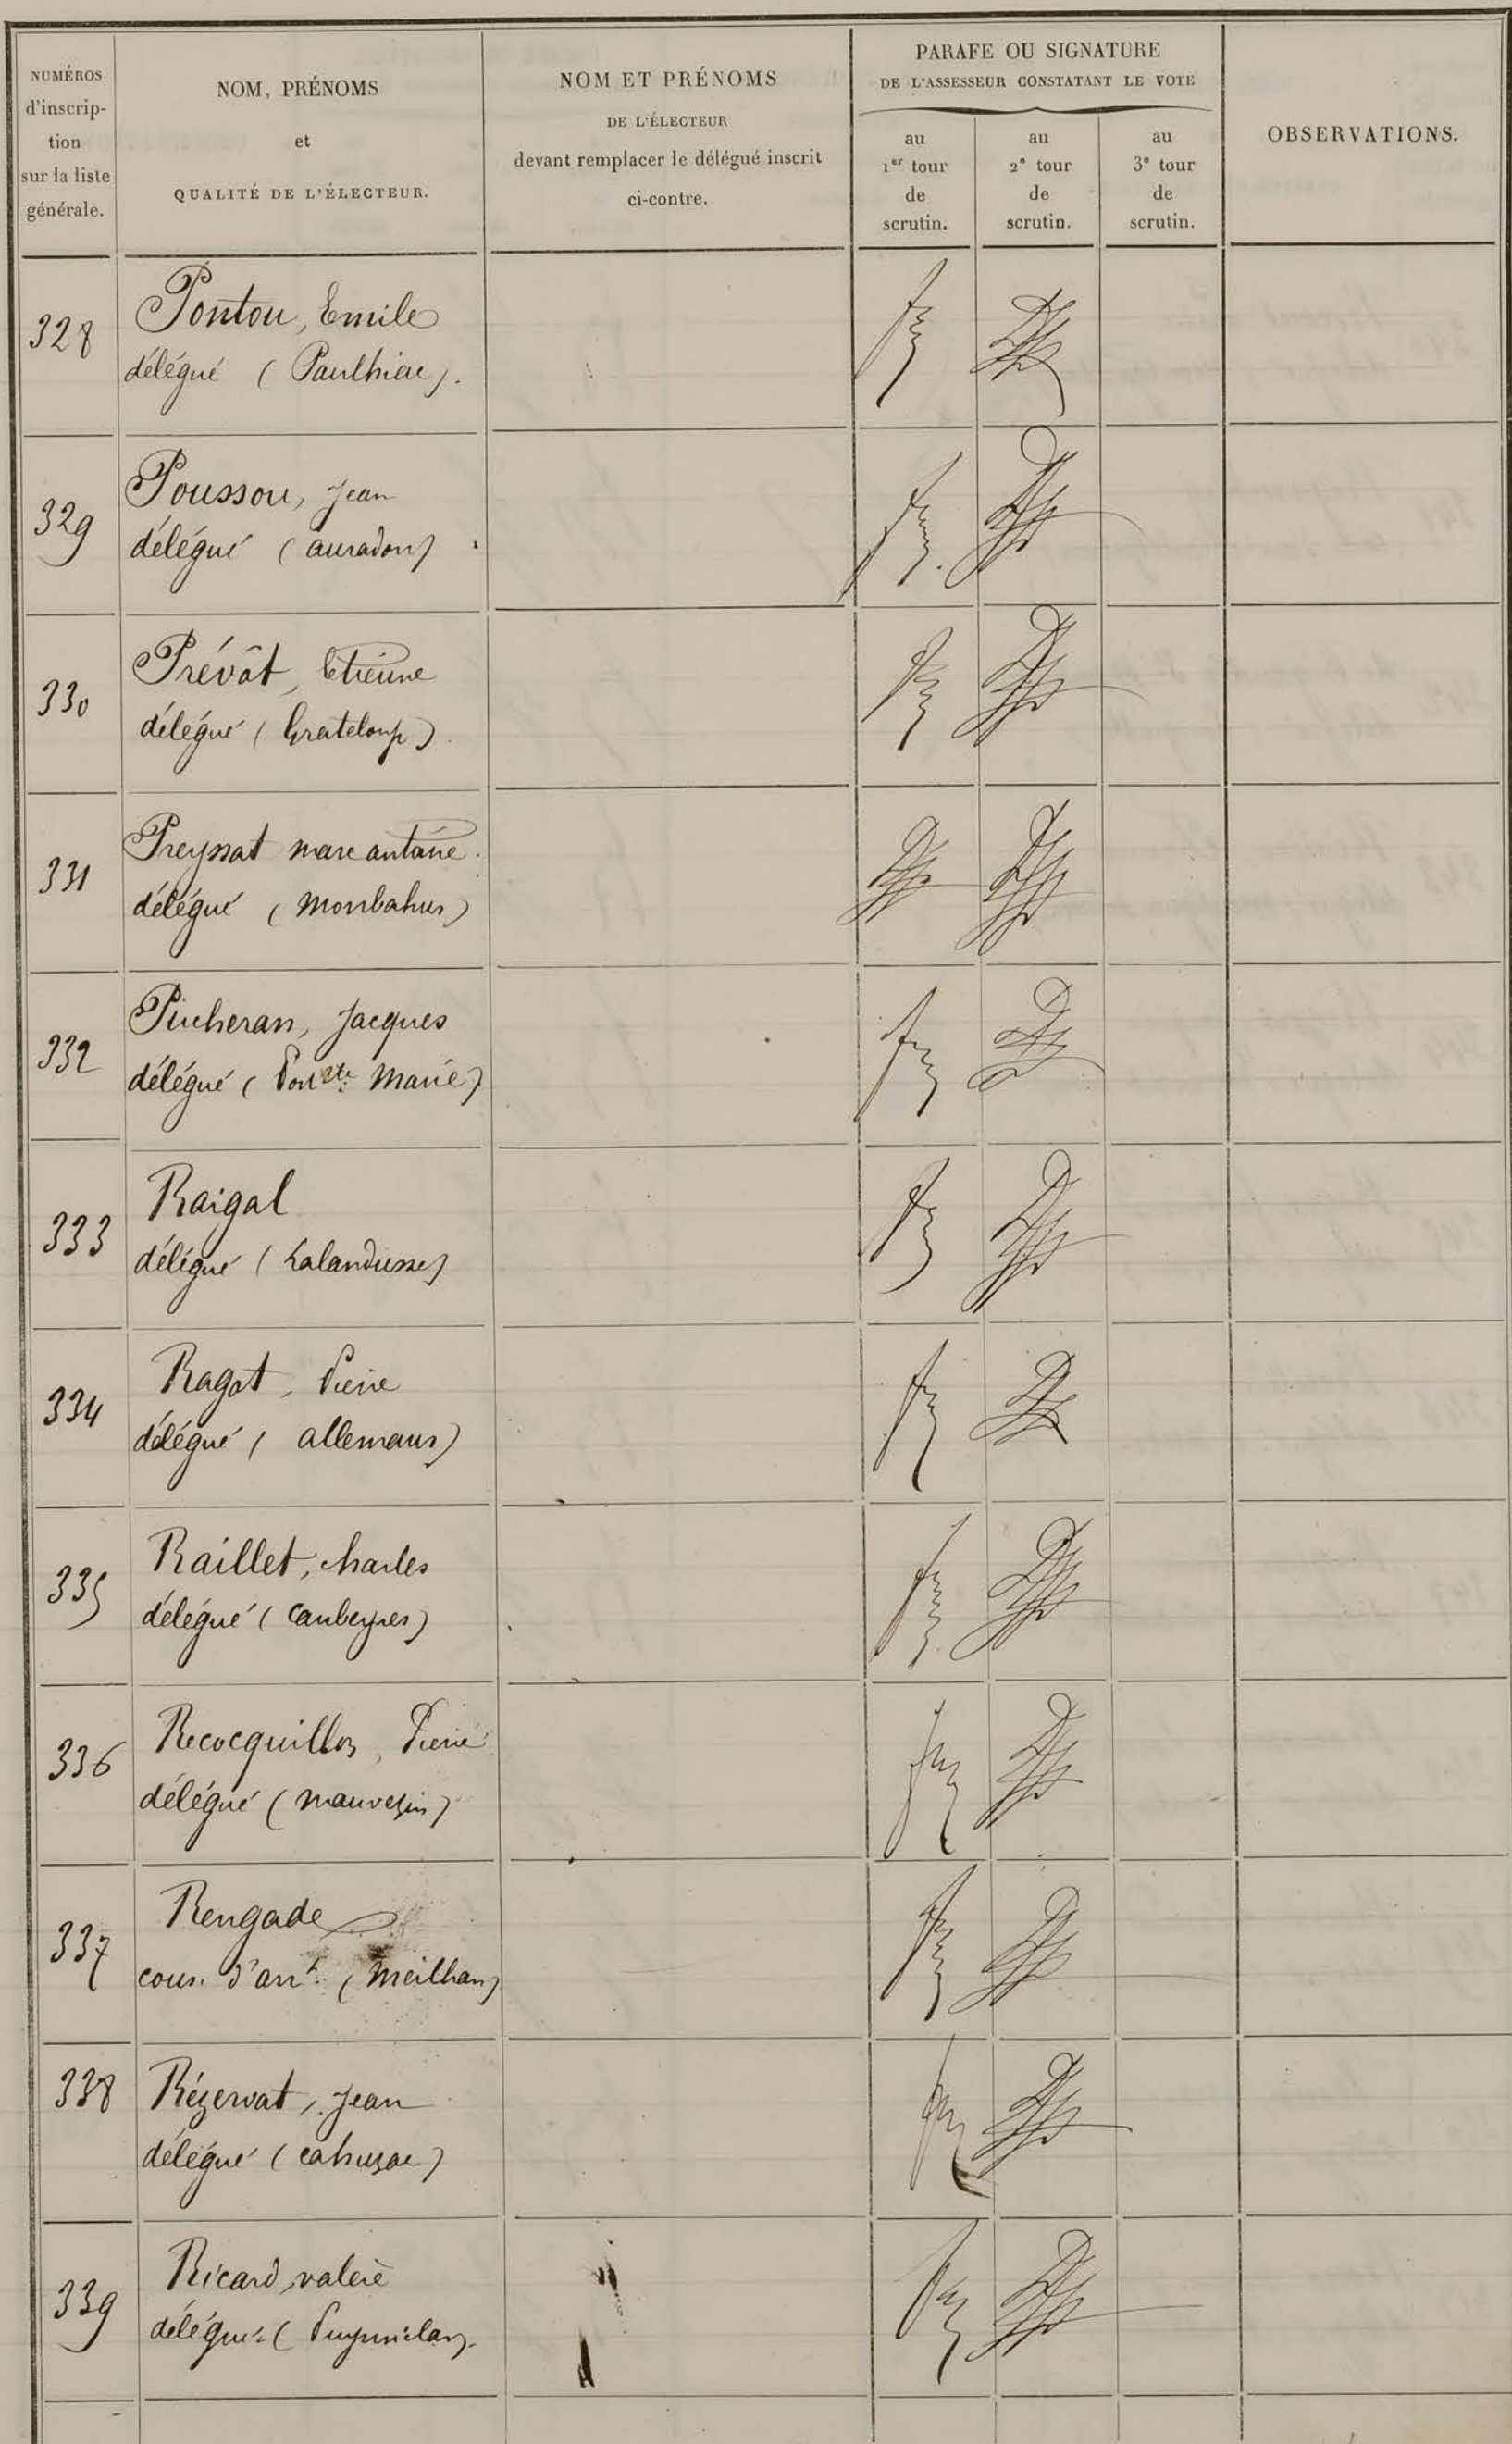 NUMÉROS
d'inscrip-
tion
sur la liste
générale.
NOM, PRÉNOMS
et
QUALITÉ DE L'ÉLECTEUR.
NOM ET PRÉNOMS
DE L'ÉLECTEUR
devant remplacer le délégué inscrit
ci-contre.
PARAFE OU SIGNATURE
DE L'ASSESSEUR CONSTATANT LE VOTE
au
1er tour
de
scrutin.
au
2e tour
de
scrutin.
au
3e tour
de
scrutin.
OBSERVATIONS.
328 Pontou, Emile
délégué (Paulhiac).
329 Poussou, Jean
délégué (auradou)
330 Prévôt, Etienne
délégué (Grateloup)
331 Preyssat marc antoine.
délégué (Monbahus)
332 Pucheran, Jacques
délégué (Port Ste Marie)
333 Raigal
délégué (Lalandusse)
334 Ragot, Pierre
délégué (allemans)
335 Raillet, charles
délégué (Caubeyres)
336 Recocquillon, Pierre
délégué (mauvezin)
337 Rengade
cons. d'arrt. (Meilhan)
338 Rézervat, Jean
délégué (cahuzac)
339 Ricard, valère
délégué (Puymiclan).